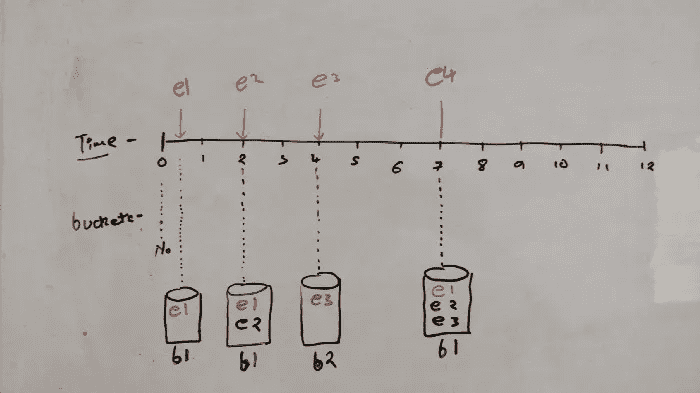 e1 e2 e3 e4
Time -
0 1 2 3 4 5 6 7 8 9 10 11 12
buckets-
No
e1 e1 e3 e1
e2 e2
e3
b1 b1 b2 b1